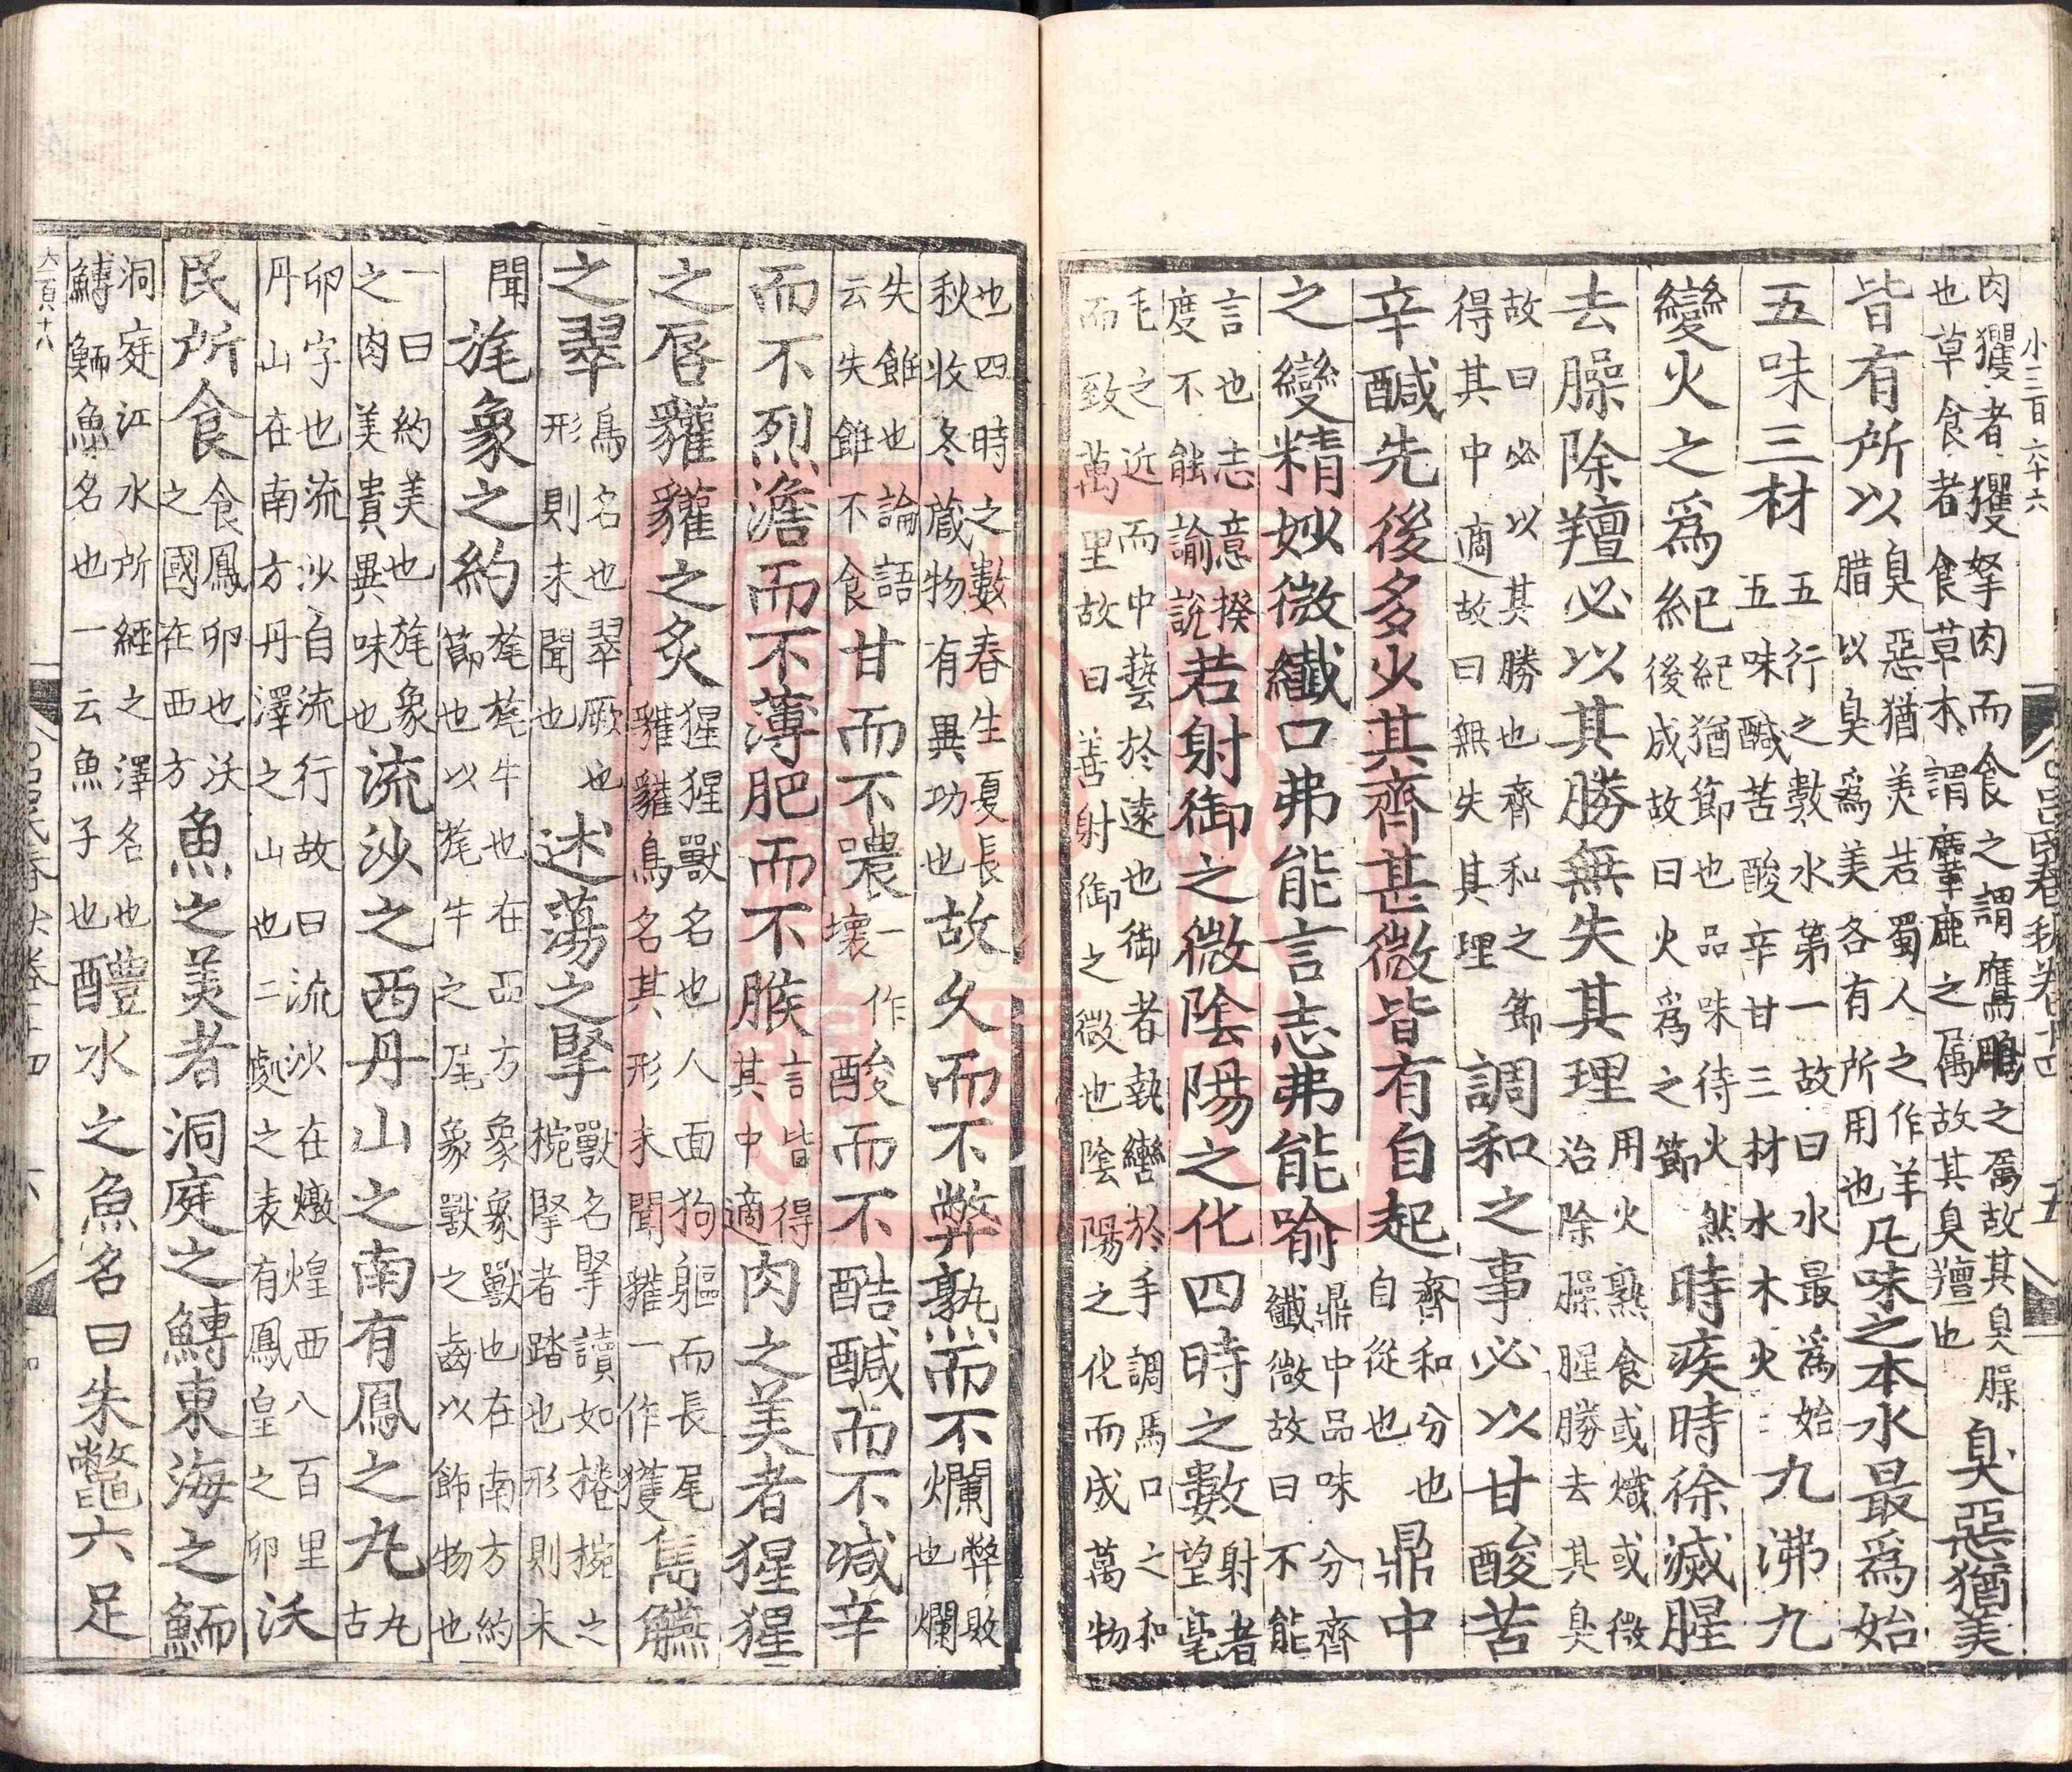 小三百六十六
呂氏春秋卷十四
五
肉玃者玃拏肉而食之謂鷹鵰之屬故其臭臊也草食者食草木謂麞鹿之屬故其臭羶也臭惡猶美
皆有所以臭惡猶美若蜀人之作羊腊以臭爲美各有所用也凡味之本水最爲始
五味三材五行之數水第一故曰水最爲始五味鹹苦酸辛甘三材水木火九沸九
變火之爲紀紀猶節也品味待火然後成故曰火爲之節時疾時徐滅腥
去臊除羶必以其勝無失其理用火熟食或熾或微治除臊腥勝去其臭
故曰必以其勝也齊和之節得其中適故曰無失其理調和之事必以甘酸苦
辛鹹先後多少其齊甚微皆有自起齊和分也自從也鼎中
之變精妙微纖口弗能言志弗能喻鼎中品味分齊纖微故曰不能
言也志意揆度不能諭說若射御之微陰陽之化四時之數射者望毫
毛之近而中藝於遠也御者執轡於手調馬口之和而致萬里故曰善射御之微也陰陽之化而成萬物
也四時之數春生夏長秋收冬藏物有異功也故久而不弊熟而不爛弊敗也爛
失飪也論語云失飪不食甘而不噥一作壞酸而不酷鹹而不減辛
而不烈澹而不薄肥而不䐑言皆得其中適肉之美者猩猩
之唇貛貛之炙猩猩獸名也人面狗軀而長尾貛貛鳥名其形未聞貛一作獲雋觾
之翠鳥名也翠厥也形則未聞也述蕩之掔獸名掔讀如棬椀之椀掔者踏也形則未
聞旄象之約旄旄牛也在西方象象獸也在南方約節也以旄牛之尾象獸之齒以飾物也
一曰約美也旄象之肉美貴異味也流沙之西丹山之南有鳳之丸丸古
卵字也流沙自流行故曰流沙在燉煌西八百里丹山在南方丹澤之山也二處之表有鳳皇之卵沃
民所食食鳳卵也沃之國在西方魚之美者洞庭之鱄東海之鮞
洞庭江水所經之澤名也鱄鮞魚名也一云魚子也醴水之魚名曰朱鼈六足